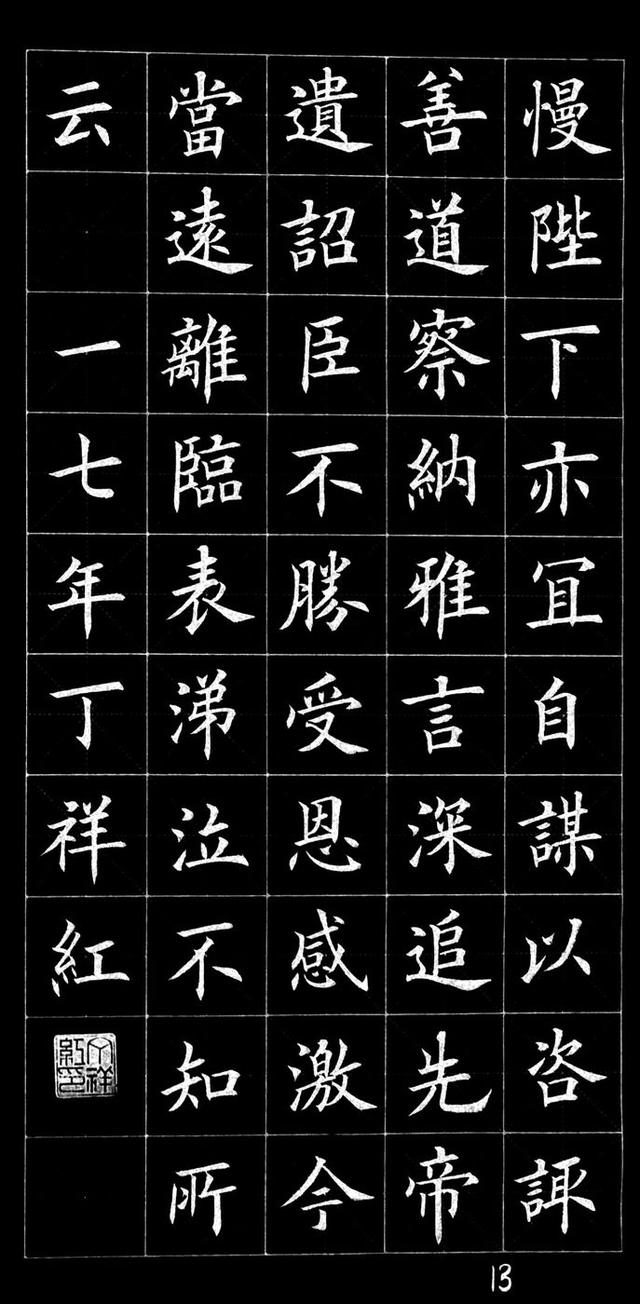 慢陛下亦冝自謀以咨諏
善道察納雅言深追先帝
遺詔臣不勝受恩感激今
當遠離臨表涕泣不知所
云 一七年丁祥紅
丁祥紅印
13